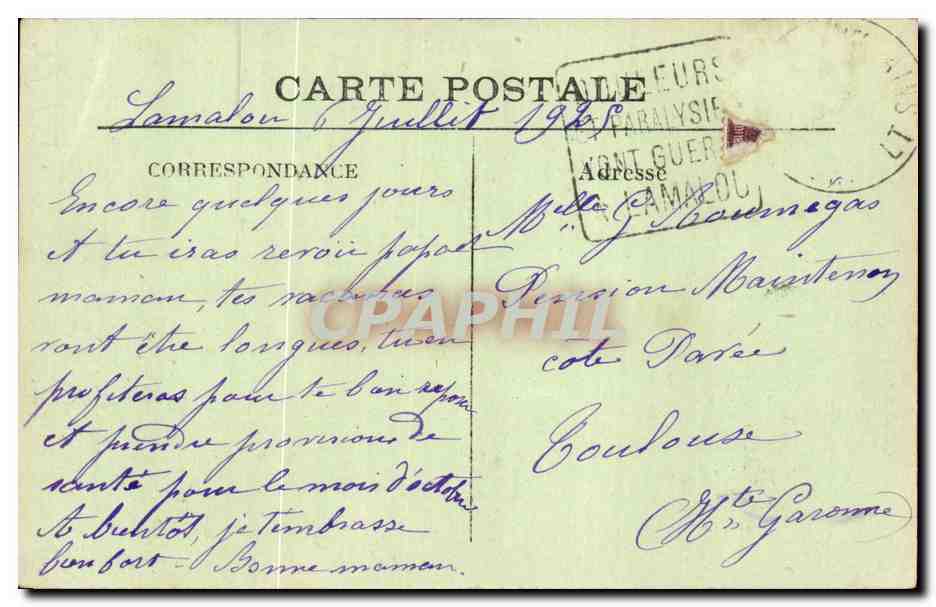 CARTE POSTALE
Lamalou 6 Juillet 1925
CORRESPONDANCE
Encore quelques jours
et tu iras revoir papa et
maman, tes vacances
vont être longues, tu en
profiteras pour te bien reposer
et prendre provisions de
santé pour le mois d'octobre
A bientôt, je t'embrasse
bien fort - Bonne maman.
DOULEURS
ET PARALYSIE
VONT GUER
A LAMALOU
Adresse
Melle G Roumégas
Pension Maintenon
côte Pavée
Toulouse
Hte Garonne
CPAPHIL